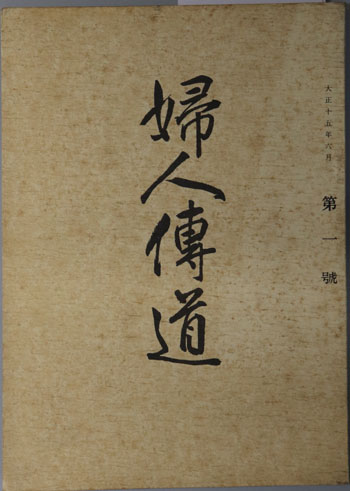 大正十五年六月
第一號
婦人傳道